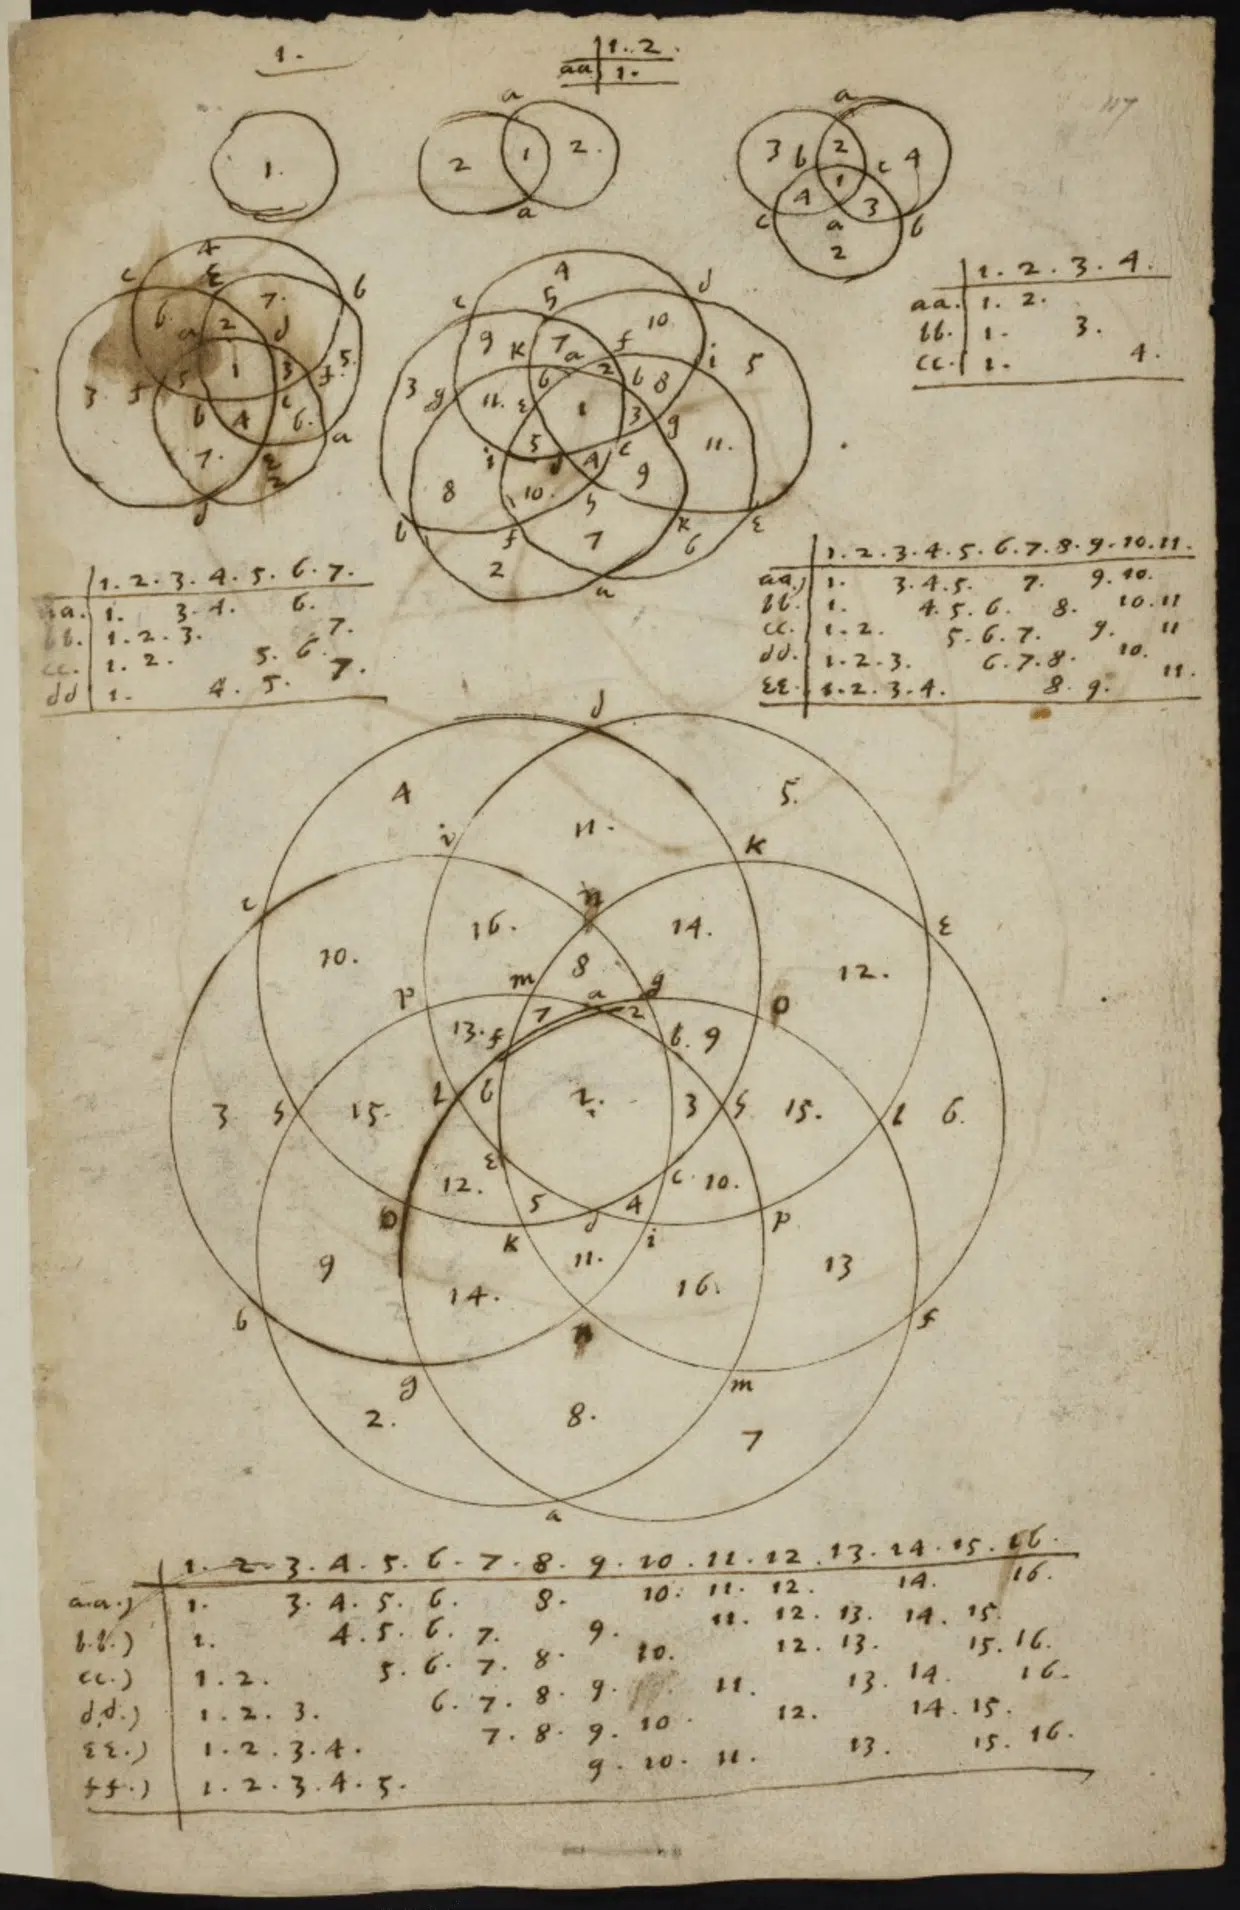 1.
1. 2.
aa 1.
117
1.
a
2 1 2.
a
a
3 b 2 c 4
1
4 3
c a b
2
1. 2. 3. 4.
aa. 1. 2.
bb. 1. 3.
cc. 1. 4.
4
c ε b
6. 7.
a 2 d
5.
3. f 5 1 3 f.
b 4 c 6. a
7. ε
2
d
4
c h d
9 7 10 i 5
k a f
3 g 11. 6 2 b 8
ε 1 3 g 11.
5 c
i d 4 9
8 10. h
b f k ε
7 6
2 a
1. 2. 3. 4. 5. 6. 7.
aa. 1. 3. 4. 6.
bb. 1. 2. 3. 7.
cc. 1. 2. 5. 6.
dd 1. 4. 5. 7.
1. 2. 3. 4. 5. 6. 7. 8. 9. 10. 11.
aa. 1. 3. 4. 5. 7. 9. 10.
bb. 1. 4. 5. 6. 8. 10. 11
cc. 1. 2. 5. 6. 7. 9. 11
dd. 1. 2. 3. 6. 7. 8. 10.
εε. 1. 2. 3. 4. 8. 9. 11.
d
4 5.
i 11. k
c n ε
16. 14.
10. 8 12.
p m a g o
13. f 7 2 b. 9
l 6 1. 3 h 15. l 6.
3 h 15.
ε c 10.
12. 5 d 4
o k i p
9 11. 13
14. 16.
b n f
g m
2. 8. 7
a
1. 2. 3. 4. 5. 6. 7. 8. 9. 10. 11. 12. 13. 14. 15. 16.
a.a.) 1. 3. 4. 5. 6. 8. 10. 11. 12. 14. 16.
b.b.) 1. 4. 5. 6. 7. 9. 11. 12. 13. 14. 15.
cc.) 1. 2. 5. 6. 7. 8. 10. 12. 13. 15. 16.
d.d.) 1. 2. 3. 6. 7. 8. 9. 11. 13. 14. 16.
εε.) 1. 2. 3. 4. 7. 8. 9. 10. 12. 14. 15.
ff.) 1. 2. 3. 4. 5. 9. 10. 11. 13. 15. 16.